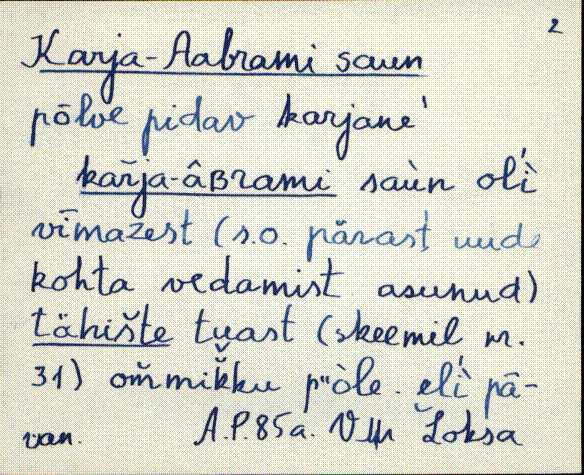 2
Karja-Aabrami saun
põlve pidav karjane'
kar̆ja-âBrami saùn olì
vīmazest (s.o. pärast uude
kohta vedamist asunud)
tähište tuast (skeemil nr.
31) om̆mik̆ku p"òle. elì pä-
van. A.P. 85a. Võn Loksa